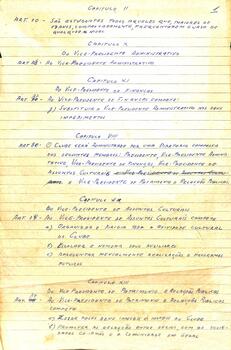 CAPITULO II
ART. 10 - SÃO ESTUDANTES TODOS AQUELES QUE, MAIORES DE
CAPITULO X
DO VICE-PRESIDENTE ADMINISTRATIVO
AO VICE-PRESIDENTE ADMINISTRATIVO
CAPITULO XI
DO VICE-PRESIDENTE DE FINANÇAS
AO VICE-PRESIDENTE DE FINANÇAS COMPETE:
SUBSTITUIR O VICE-PRESIDENTE ADMINISTRATIVO NOS SEUS
IMPEDIMENTOS
CAPITULO VIII
O CLUBE SERÁ ADMINISTRADO POR UMA DIRETORIA COMPOSTA
DOS SEGUINTES MEMBROS: PRESIDENTE, VICE-PRESIDENTE ADMINIS-
TRATIVO, VICE-PRESIDENTE DE FINANÇAS, VICE-PRESIDENTE DE
ASSUNTOS CULTURAIS
E VICE-PRESIDENTE DE PATRIMONIO E RELAÇÕES PUBLICAS
CAPITULO
DO VICE-PRESIDENTE DE ASSUNTOS CULTURAIS
AO VICE-PRESIDENTE DE ASSUNTOS CULTURAIS COMPETE
a) ORGANIZAR E DIRIGIR TODA A ATIVIDADE CULTURAL
DO CLUBE
b) ESCOLHER E NOMEAR SEUS AUXILIARES
c) APRESENTAR MENSALMENTE REALIZAÇÕES E PROGRAMAS
FUTUROS
CAPITULO XII
DO VICE-PRESIDENTE DE PATRIMONIO E RELAÇÕES PUBLICAS
AO VICE-PRESIDENTE DE PATRIMONIO E RELAÇÕES PUBLICAS
COMPETE
a) ZELAR PELOS BENS IMOVEIS E MOVEIS DO CLUBE
b) PROMOVER AS RELAÇÕES ENTRE SÓCIOS, COM AS SOCIE-
DADES CO-IRMÃS E A COMUNIDADE EM GERAL